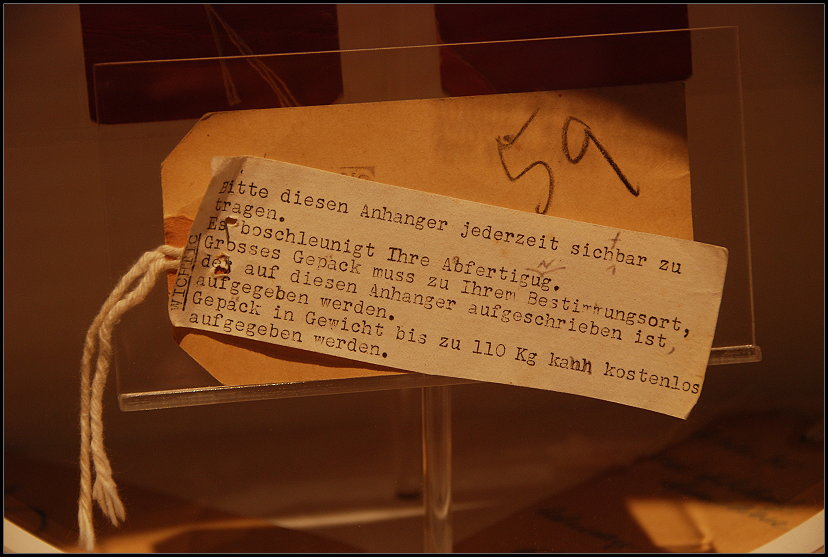 59
WICHTIG
Bitte diesen Anhanger jederzeit sichtbar zu
tragen.
Es boschleunigt Ihre Abfertigug.
Grosses Gepack muss zu Ihrem Bestimmungsort,
der auf diesen Anhanger aufgeschrieben ist,
aufgegeben werden.
Gepack in Gewicht bis zu 110 Kg kann kostenlos
aufgegeben werden.